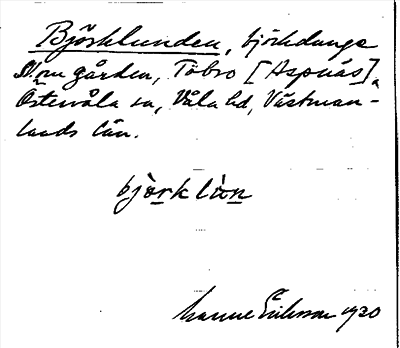 Björklunden, björkdunge
N om gården, Tobro [Aspnäs],
Östervåla sn, Våla hd, Västman-
lands län.
björklùn
Manne Eriksson 1930